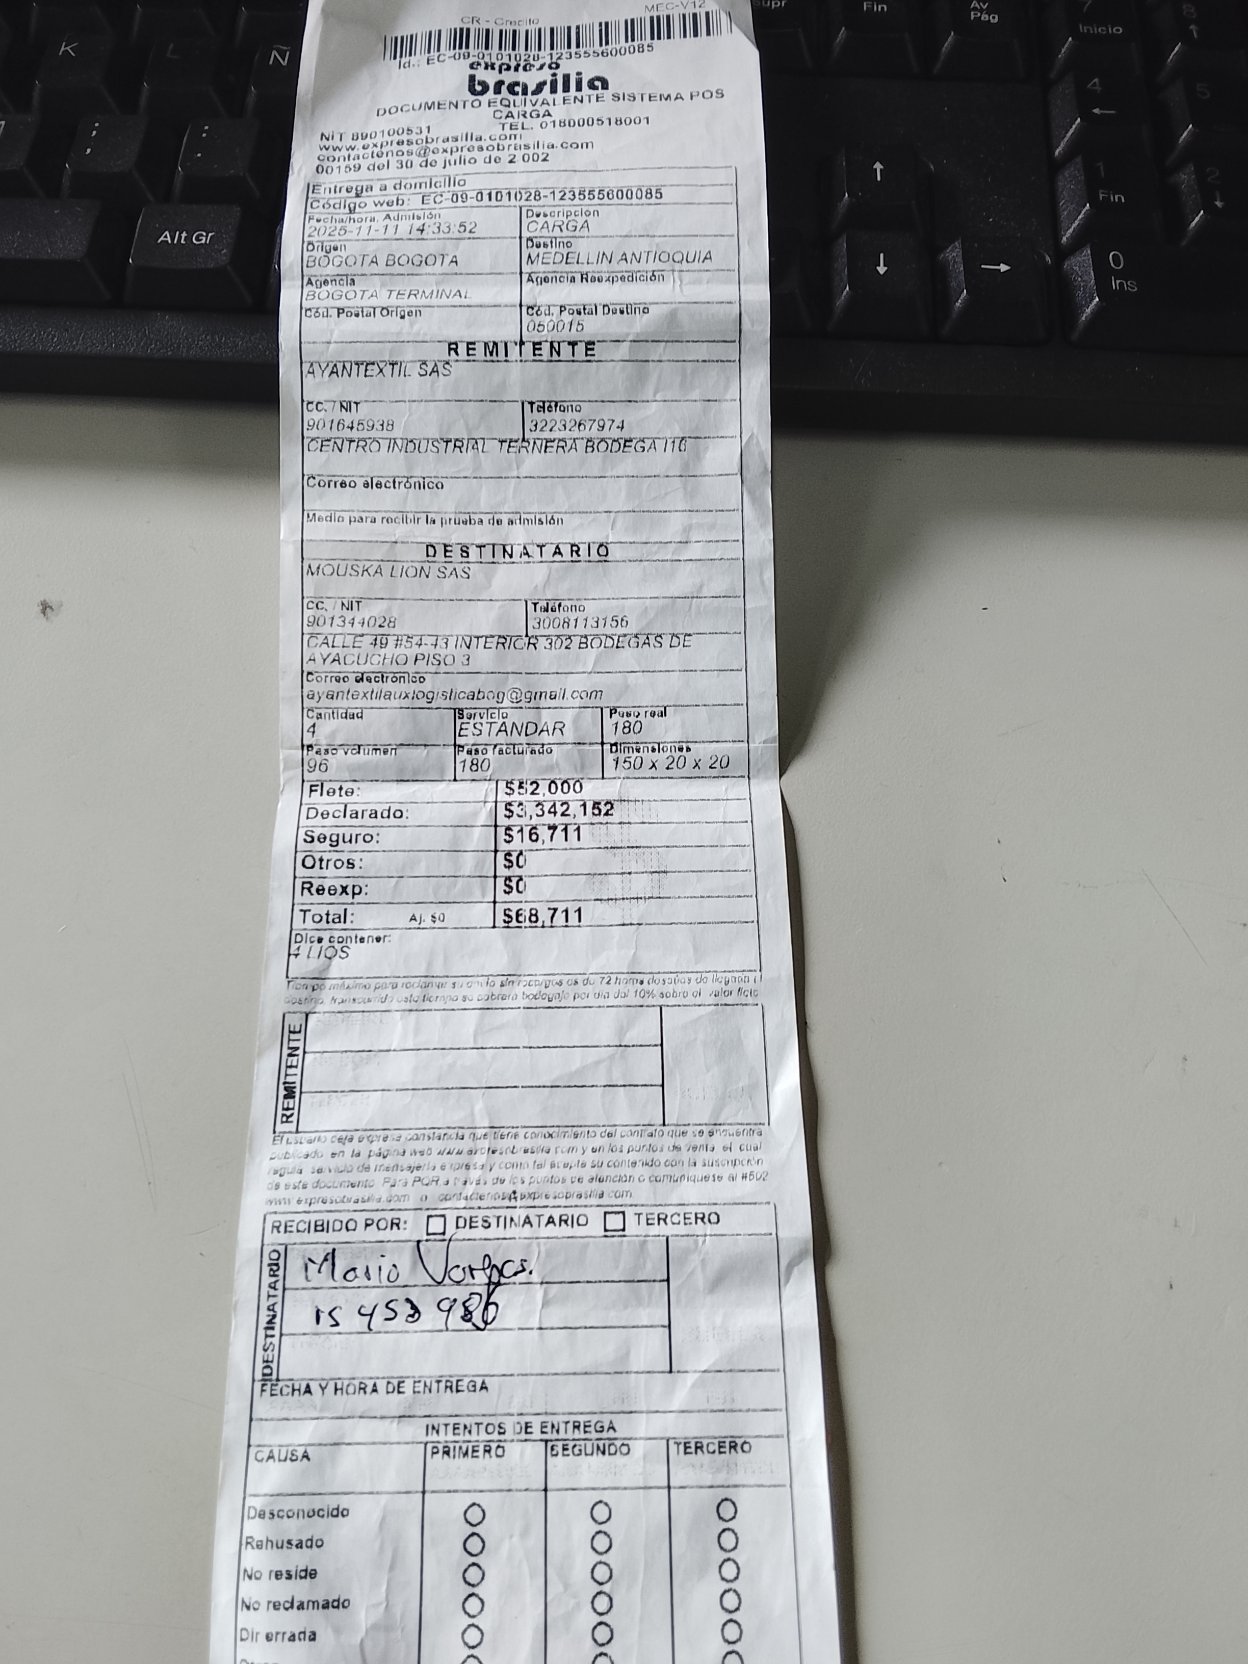 CR - Credito
MEC-V12
Id.: EC-09-0101028-123555600085
expreso
brasilia
DOCUMENTO EQUIVALENTE SISTEMA POS
CARGA
NIT 890100531 TEL. 018000518001
www.expresobrasilia.com
contactenos@expresobrasilia.com
00159 del 30 de julio de 2 002
Entrega a domicilio
Código web: EC-09-0101028-123555600085
Fecha/hora. Admisión Descripcion
2025-11-11 14:33:52 CARGA
Origen Destino
BOGOTA BOGOTA MEDELLIN ANTIOQUIA
Agencia Agencia Reexpedición
BOGOTA TERMINAL
Cód. Postal Origen Cód. Postal Destino
050015
REMITENTE
AYANTEXTIL SAS
CC. / NIT Teléfono
901645938 3223267974
CENTRO INDUSTRIAL TERNERA BODEGA I16
Correo electrónico
Medio para recibir la prueba de admisión
DESTINATARIO
MOUSKA LION SAS
CC. / NIT Teléfono
901344028 3008113156
CALLE 49 #54-43 INTERIOR 302 BODEGAS DE
AYACUCHO PISO 3
Correo electrónico
ayantextilauxlogisticabog@gmail.com
Cantidad Servicio Peso real
4 ESTANDAR 180
Peso volumen Peso facturado Dimensiones
96 180 150 x 20 x 20
Flete: $52,000
Declarado: $3,342,152
Seguro: $16,711
Otros: $0
Reexp: $0
Total: Aj. $0 $68,711
Dice contener:
4 LIOS
Tiempo máximo para reclamar su envío sin recargos es de 72 horas después de llegada al
destino, transcurrido este tiempo se cobrará bodegaje por día del 10% sobre el valor flete
REMITENTE
El usuario deja expresa constancia que tiene conocimiento del contrato que se encuentra
publicado en la página web www.expresobrasilia.com y en los puntos de venta, el cual
regula servicio de mensajería expresa y como tal acepta su contenido con la suscripción
de este documento. Para PQR a través de los puntos de atención o comuníquese al #502
www.expresobrasilia.com o contactenos@expresobrasilia.com
RECIBIDO POR: DESTINATARIO TERCERO
DESTINATARIO
Mario Vargas.
15 453 986
FECHA Y HORA DE ENTREGA
INTENTOS DE ENTREGA
CAUSA PRIMERO SEGUNDO TERCERO
Desconocido
Rehusado
No reside
No reclamado
Dir errada
K
L
Ñ
Alt Gr
Fin
Av
Pág
7
Inicio
8
4
5
1
Fin
2
0
Ins